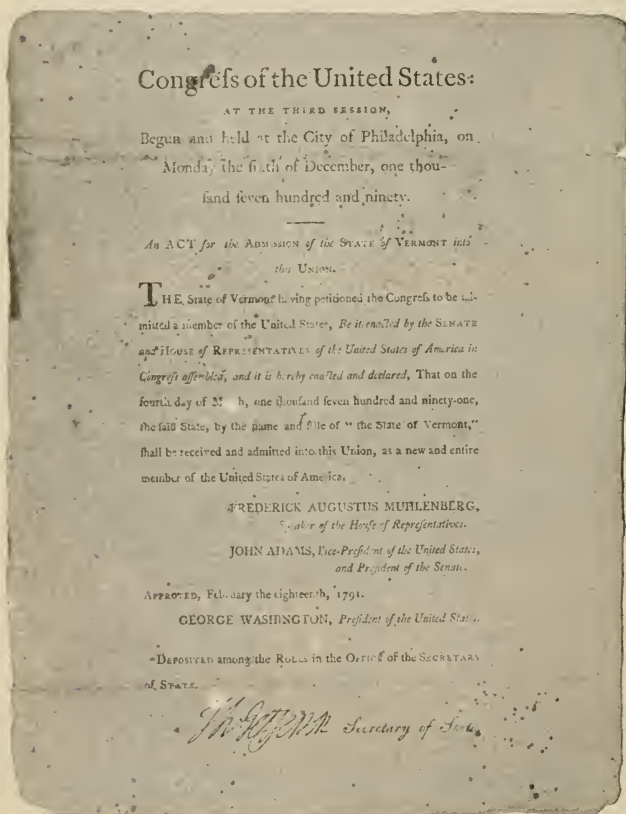 Congreſs of the United States:
AT THE THIRD SESSION,
Begun and held at the City of Philadelphia, on
Monday the ſixth of December, one thou-
ſand ſeven hundred and ninety.
An ACT for the ADMISSION of the STATE of VERMONT into
this UNION.
THE State of Vermont having petitioned the Congreſs to be ad-
mitted a member of the United States, Be it enacted by the SENATE
and HOUSE of REPRESENTATIVES of the United States of America in
Congreſs aſſembled, and it is hereby enacted and declared, That on the
fourth day of March, one thouſand ſeven hundred and ninety-one,
the ſaid State, by the name and ſtile of "the State of Vermont,"
ſhall be received and admitted into this Union, as a new and entire
member of the United States of America.
FREDERICK AUGUSTUS MUHLENBERG,
Speaker of the Houſe of Repreſentatives.
JOHN ADAMS, Vice-Preſident of the United States,
and Preſident of the Senate.
APPROVED, February the eighteenth, 1791.
GEORGE WASHINGTON, Preſident of the United States.
DEPOSITED among the ROLLS in the OFFICE of the SECRETARY
of STATE.
Th: Jefferson Secretary of State